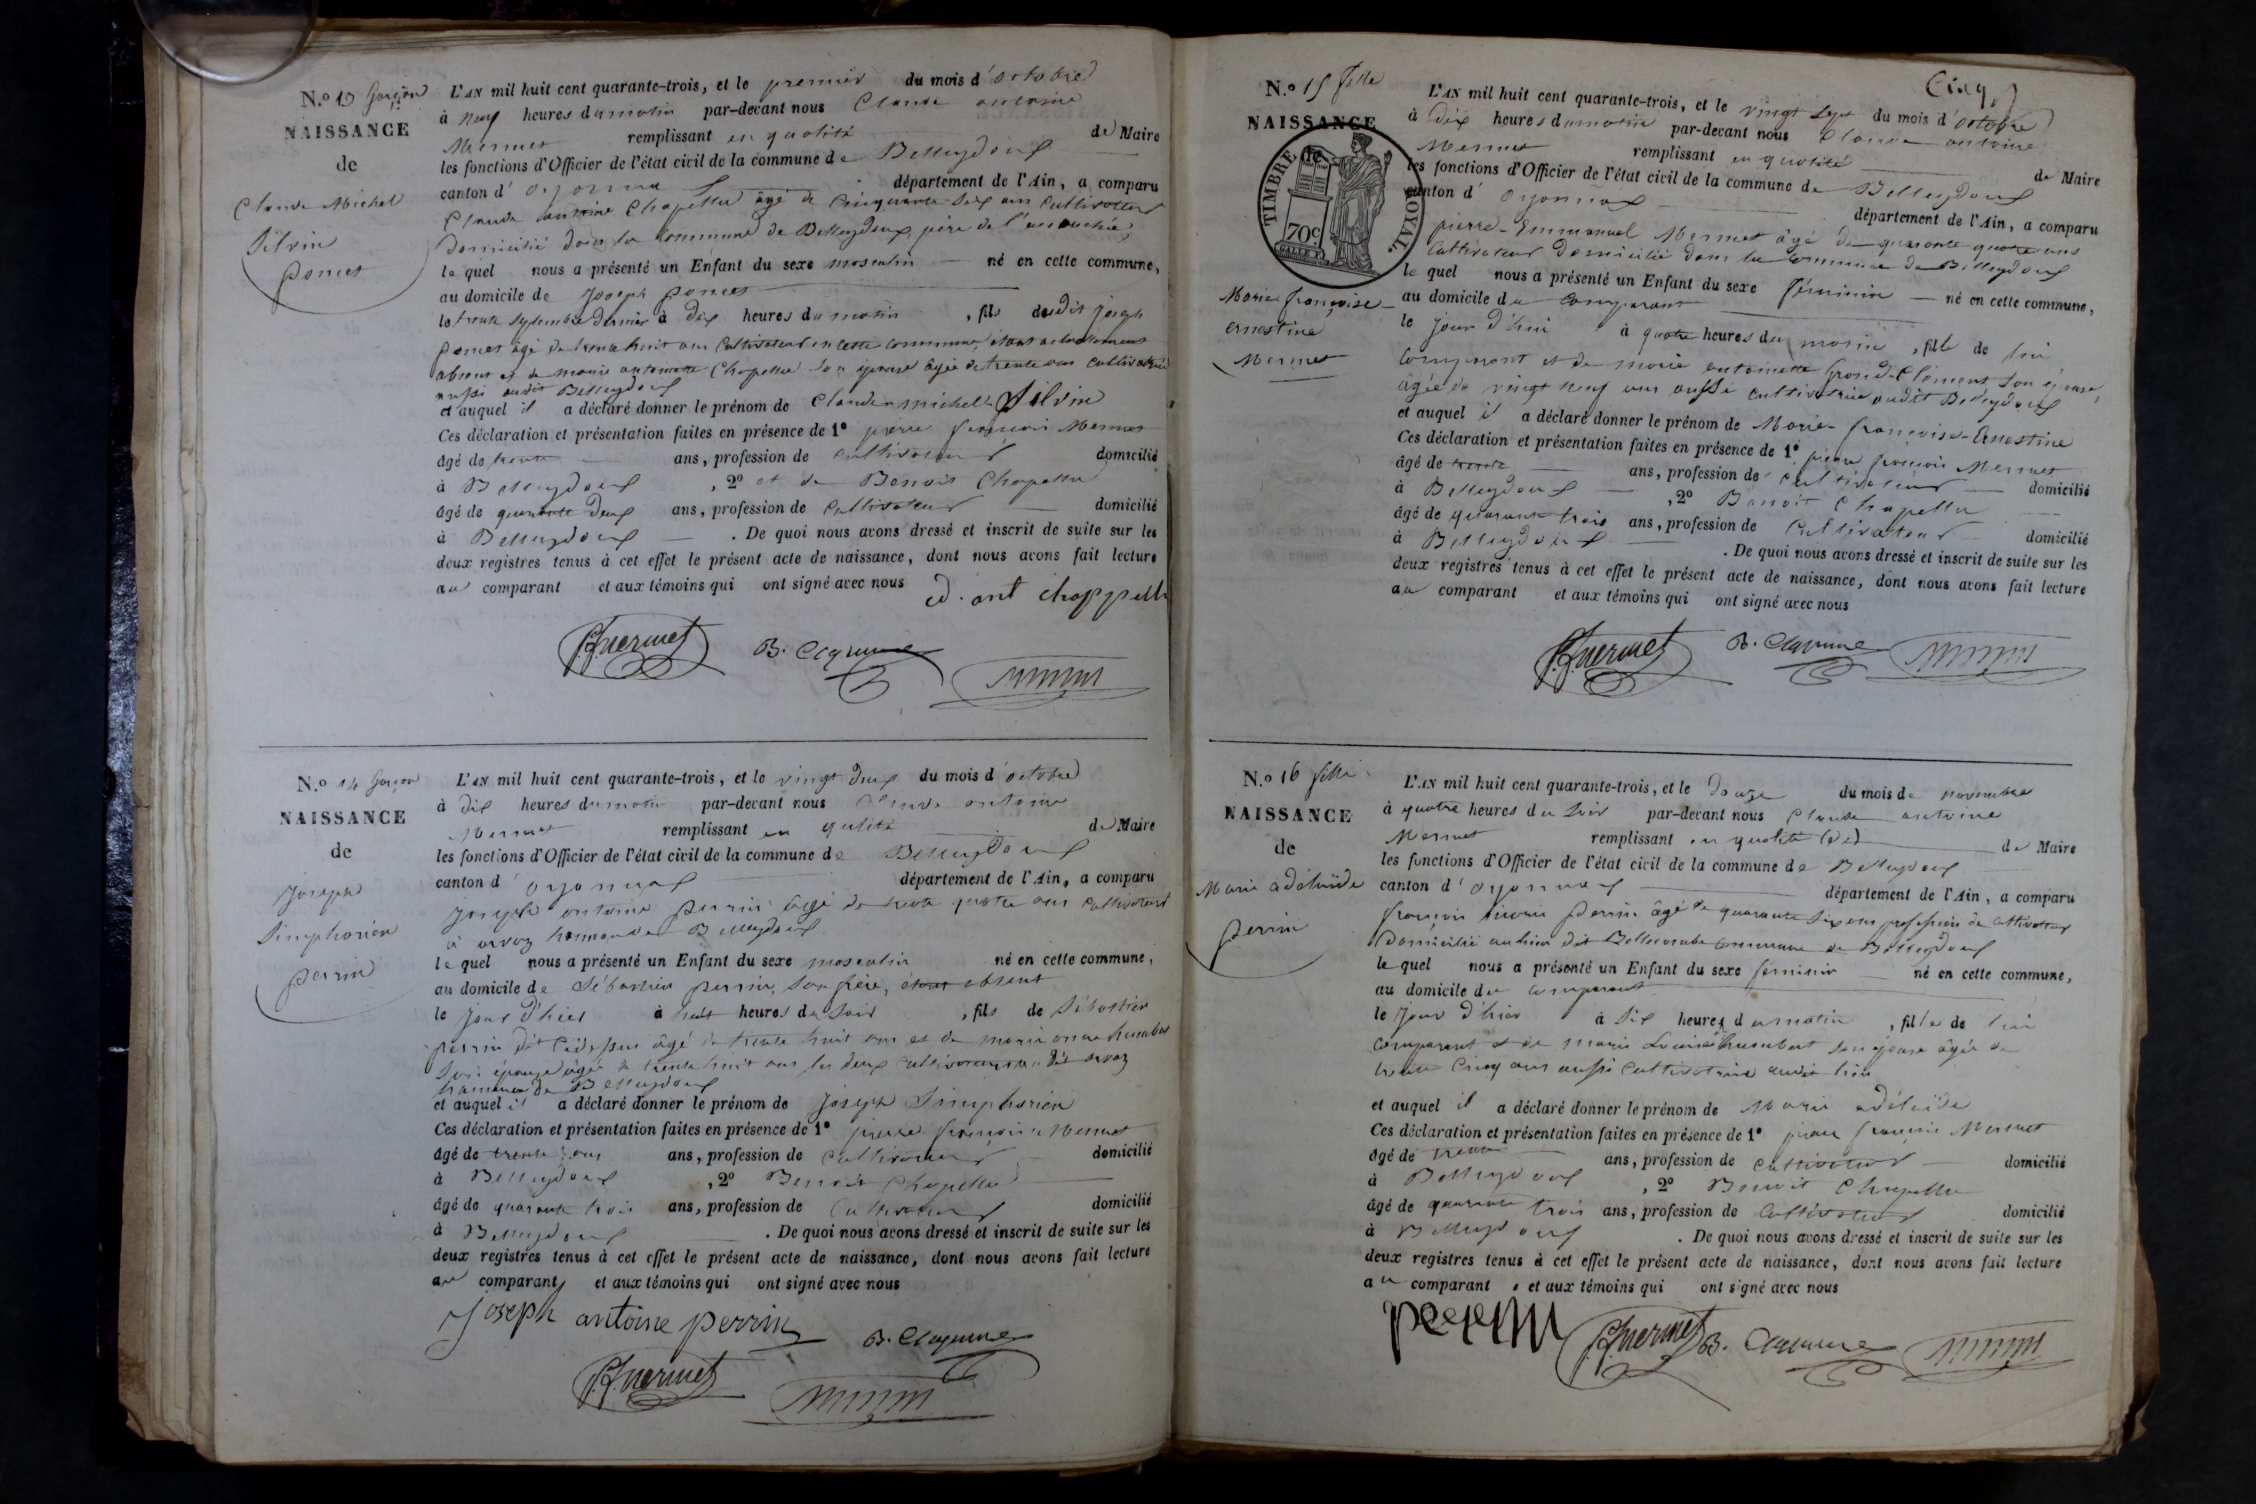 N.o 13 Garçon
NAISSANCE
de
Claude Michel
Silvin
poncet
L'AN mil huit cent quarante-trois, et le premier du mois d'octobre
à neuf heures du matin par-devant nous Claude antoine
Mermet remplissant en qualité de Maire
les fonctions d'Officier de l'état civil de la commune de Belleydoux
canton d' oyonnax département de l'Ain, a comparu
Claude antoine Chapellu âgé de Cinquante six ans Cultivateur
Domicilié dans la Commune de Belleydoux, père de l'accouchée,
le quel nous a présenté un Enfant du sexe masculin né en cette commune,
au domicile de Joseph poncet
le trente septembre dernier à dix heures du matin, fils dudit joseph
poncet âgé de trente huit ans Cultivateur en cette commune, étant actuellement
absent et de marie antoinette Chapellu son épouse âgée de trente ans cultivatrice
aussi audit Belleydoux
et auquel il a déclaré donner le prénom de Claude michel Silvin
Ces déclaration et présentation faites en présence de 1° pierre françois Mermet
âgé de trente ans, profession de cultivateur domicilié
à Belleydoux, 2° et de Benoit Chapellu
âgé de quarante deux ans, profession de Cultivateur domicilié
à Belleydoux. De quoi nous avons dressé et inscrit de suite sur les
deux registres tenus à cet effet le présent acte de naissance, dont nous avons fait lecture
au comparant et aux témoins qui ont signé avec nous
P.f. mermet
N.o 14 Garçon
NAISSANCE
de
Joseph
Simphorien
perrin
L'AN mil huit cent quarante-trois, et le vingt deux du mois d'octobre
à dix heures du matin par-devant nous Claude antoine
Mermet remplissant en qualité de Maire
les fonctions d'Officier de l'état civil de la commune de Belleydoux
canton d' oyonnax département de l'Ain, a comparu
Joseph antoine perrin âgé de trente quatre ans Cultivateur
à orvaz hameau de Belleydoux
le quel nous a présenté un Enfant du sexe masculin né en cette commune,
au domicile de Sébastien perrin, son frère, étant absent
le jour d'hier à huit heures du Soir, fils de Sébastien
perrin dit âgé de trente huit ans et de marie humbert
Son épouse âgée de trente huit ans les deux cultivateurs dit orvaz
hameau de Belleydoux
et auquel il a déclaré donner le prénom de Joseph Simphorien
Ces déclaration et présentation faites en présence de 1° pierre françois Mermet
âgé de trente ans ans, profession de cultivateur domicilié
à Belleydoux, 2° Benoit Chapellu
âgé de quarante trois ans, profession de Cultivateur domicilié
à Belleydoux. De quoi nous avons dressé et inscrit de suite sur les
deux registres tenus à cet effet le présent acte de naissance, dont nous avons fait lecture
au comparant, et aux témoins qui ont signé avec nous
Joseph antoine perrin
P.f. mermet
Cinq
N.o 15 fille
NAISSANCE
de
TIMBRE ROYAL.
70c
Marie françoise
ernestine
Mermet
L'AN mil huit cent quarante-trois, et le vingt sept du mois d'octobre
à dix heures du matin par-devant nous Claude antoine
Mermet remplissant en qualité de Maire
les fonctions d'Officier de l'état civil de la commune de Belleydoux
canton d' oyonnax département de l'Ain, a comparu
pierre-Emmanuel Mermet âgé de quarante quatre ans
Cultivateur Domicilié dans la Commune de Belleydoux
le quel nous a présenté un Enfant du sexe féminin né en cette commune,
au domicile du comparant
le jour d'hui à quatre heures du matin, fille de lui
Comparant et de marie antoinette grand-Clément son épouse,
âgée de vingt neuf ans aussi cultivatrice audit Belleydoux
et auquel il a déclaré donner le prénom de Marie-françoise-Ernestine
Ces déclaration et présentation faites en présence de 1° pierre françois Mermet
âgé de trente ans, profession de cultivateur domicilié
à Belleydoux, 2° Benoit Chapellu
âgé de quarante trois ans, profession de Cultivateur domicilié
à Belleydoux. De quoi nous avons dressé et inscrit de suite sur les
deux registres tenus à cet effet le présent acte de naissance, dont nous avons fait lecture
au comparant et aux témoins qui ont signé avec nous
P.f. mermet
N.o 16 fille
NAISSANCE
de
Marie adélaïde
perrin
L'AN mil huit cent quarante-trois, et le douze du mois de novembre
à quatre heures du Soir par-devant nous Claude antoine
Mermet remplissant en qualité de Maire
les fonctions d'Officier de l'état civil de la commune de Belleydoux
canton d' oyonnax département de l'Ain, a comparu
françois perrin âgé de quarante six ans profession de cultivateur
Domicilié au lieu dit Bellecombe commune de Belleydoux
le quel nous a présenté un Enfant du sexe féminin né en cette commune,
au domicile du comparant
le jour d'hier à six heures du matin, fille de lui
comparant et de marie Louise humbert son épouse âgée de
trente Cinq ans aussi Cultivatrice audit lieu
et auquel il a déclaré donner le prénom de Marie adélaïde
Ces déclaration et présentation faites en présence de 1° pierre françois Mermet
âgé de trente ans, profession de cultivateur domicilié
à Belleydoux, 2° Benoit Chapellu
âgé de quarante trois ans, profession de Cultivateur domicilié
à Belleydoux. De quoi nous avons dressé et inscrit de suite sur les
deux registres tenus à cet effet le présent acte de naissance, dont nous avons fait lecture
au comparant, et aux témoins qui ont signé avec nous
perrin P.f. mermet